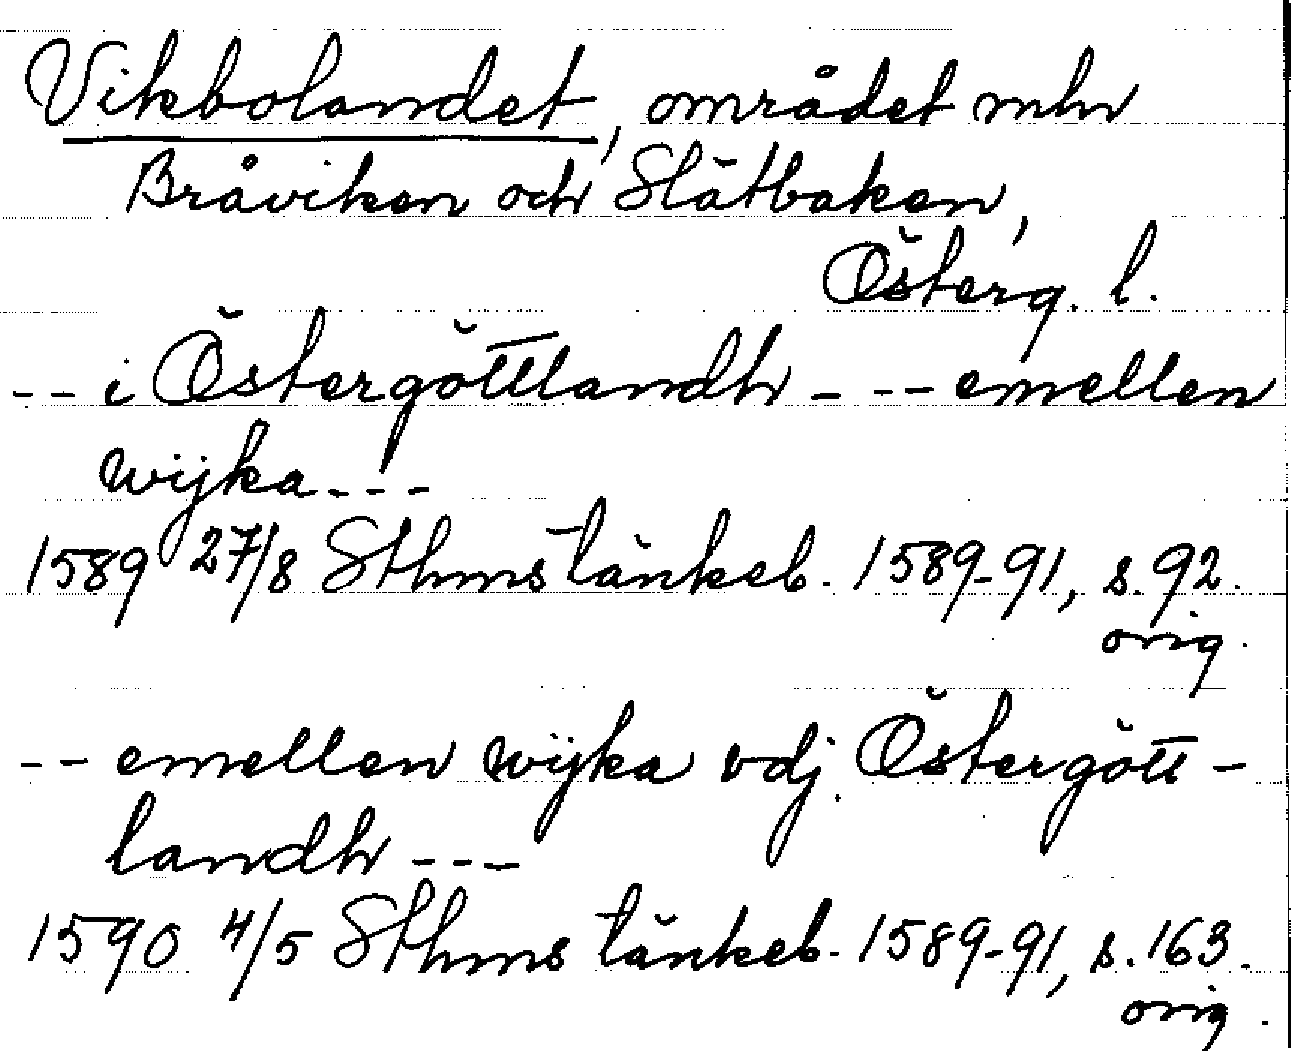 Vikbolandet, området mhr
Bråviken och Slätbaken,
Österg. l.
-- i Östergöttlandh - -- emellen
wijka---
1589 27/8 Sthms tänkeb. 1589-91, s. 92.
orig.
-- emellen wijka vdj Östergött-
landh ---
1590 4/5 Sthms tänkeb. 1589-91, s. 163.
orig.